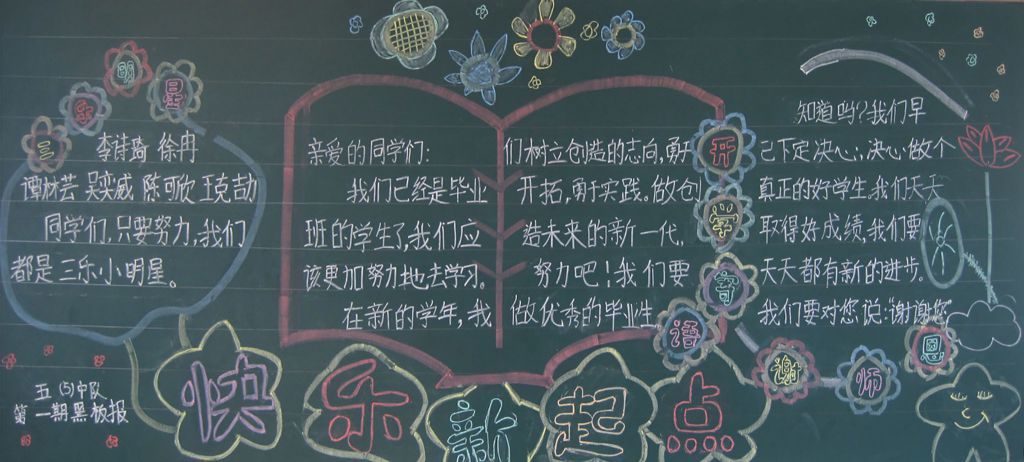 三乐明星
李诗琦 徐冉
谭林芸 吴奕威 陈可欣 王克劼
同学们,只要努力,我们
都是三乐小明星。
亲爱的同学们:
我们已经是毕业
班的学生了,我们应
该更加努力地去学习。
在新的学年,我
们树立创造的志向,勇于
开拓,勇于实践,做创
造未来的新一代,
努力吧!我们要
做优秀的毕业生
开学寄语
知道吗?我们早
己下定决心,决心做个
真正的好学生,我们天天
取得好成绩,我们要
天天都有新的进步。
我们要对您说:“谢谢您”
谢师恩
快乐新起点
五(5)中队
第一期黑板报